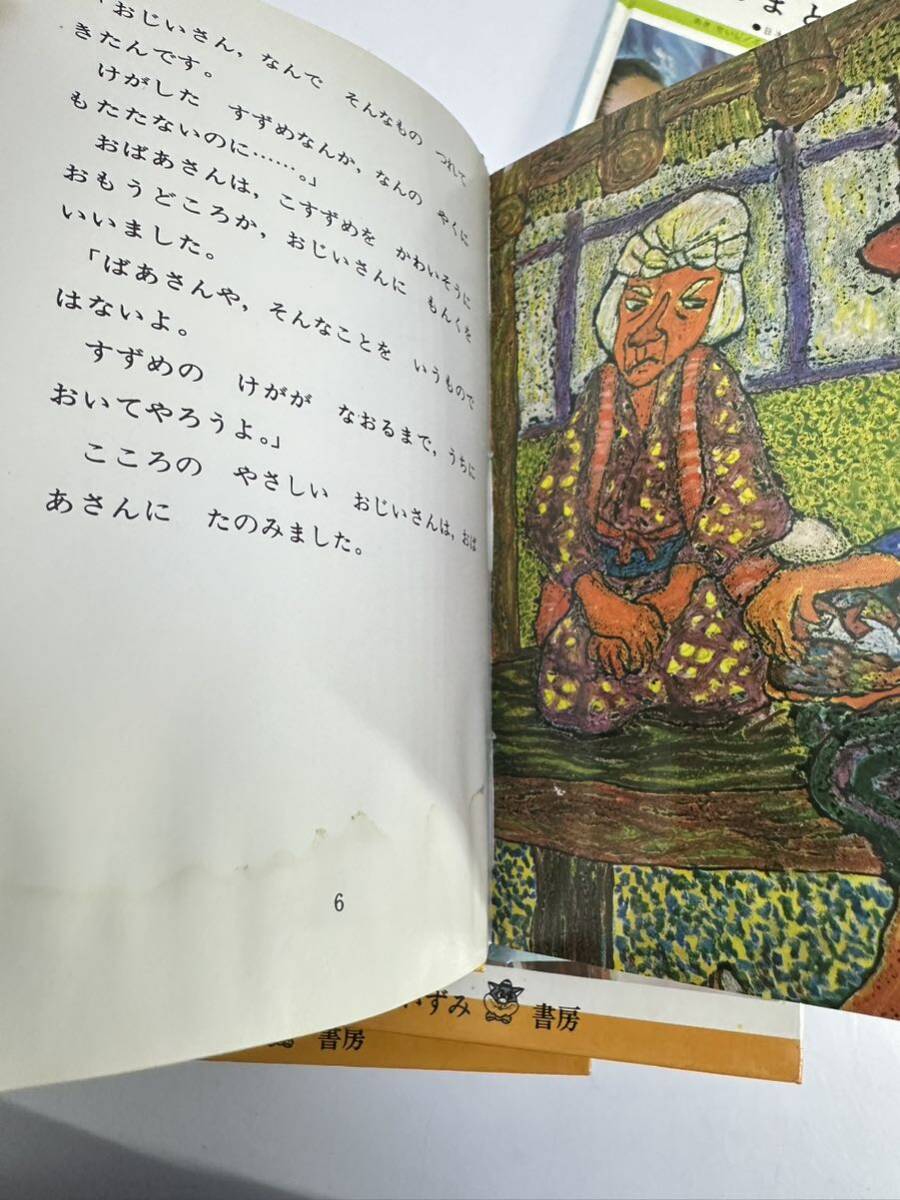 「おじいさん，なんで　そんなもの　つれて
きたんです。
けがした　すずめなんか，なんの　やくに
もたたないのに……。」
おばあさんは，こすずめを　かわいそうに
おもうどころか，おじいさんに　もんくを
いいました。
「ばあさんや，そんなことを　いうもので
はないよ。
すずめの　けがが　なおるまで，うちに
おいてやろうよ。」
こころの　やさしい　おじいさんは，おば
あさんに　たのみました。
6
ずみ 書房
書房
まと